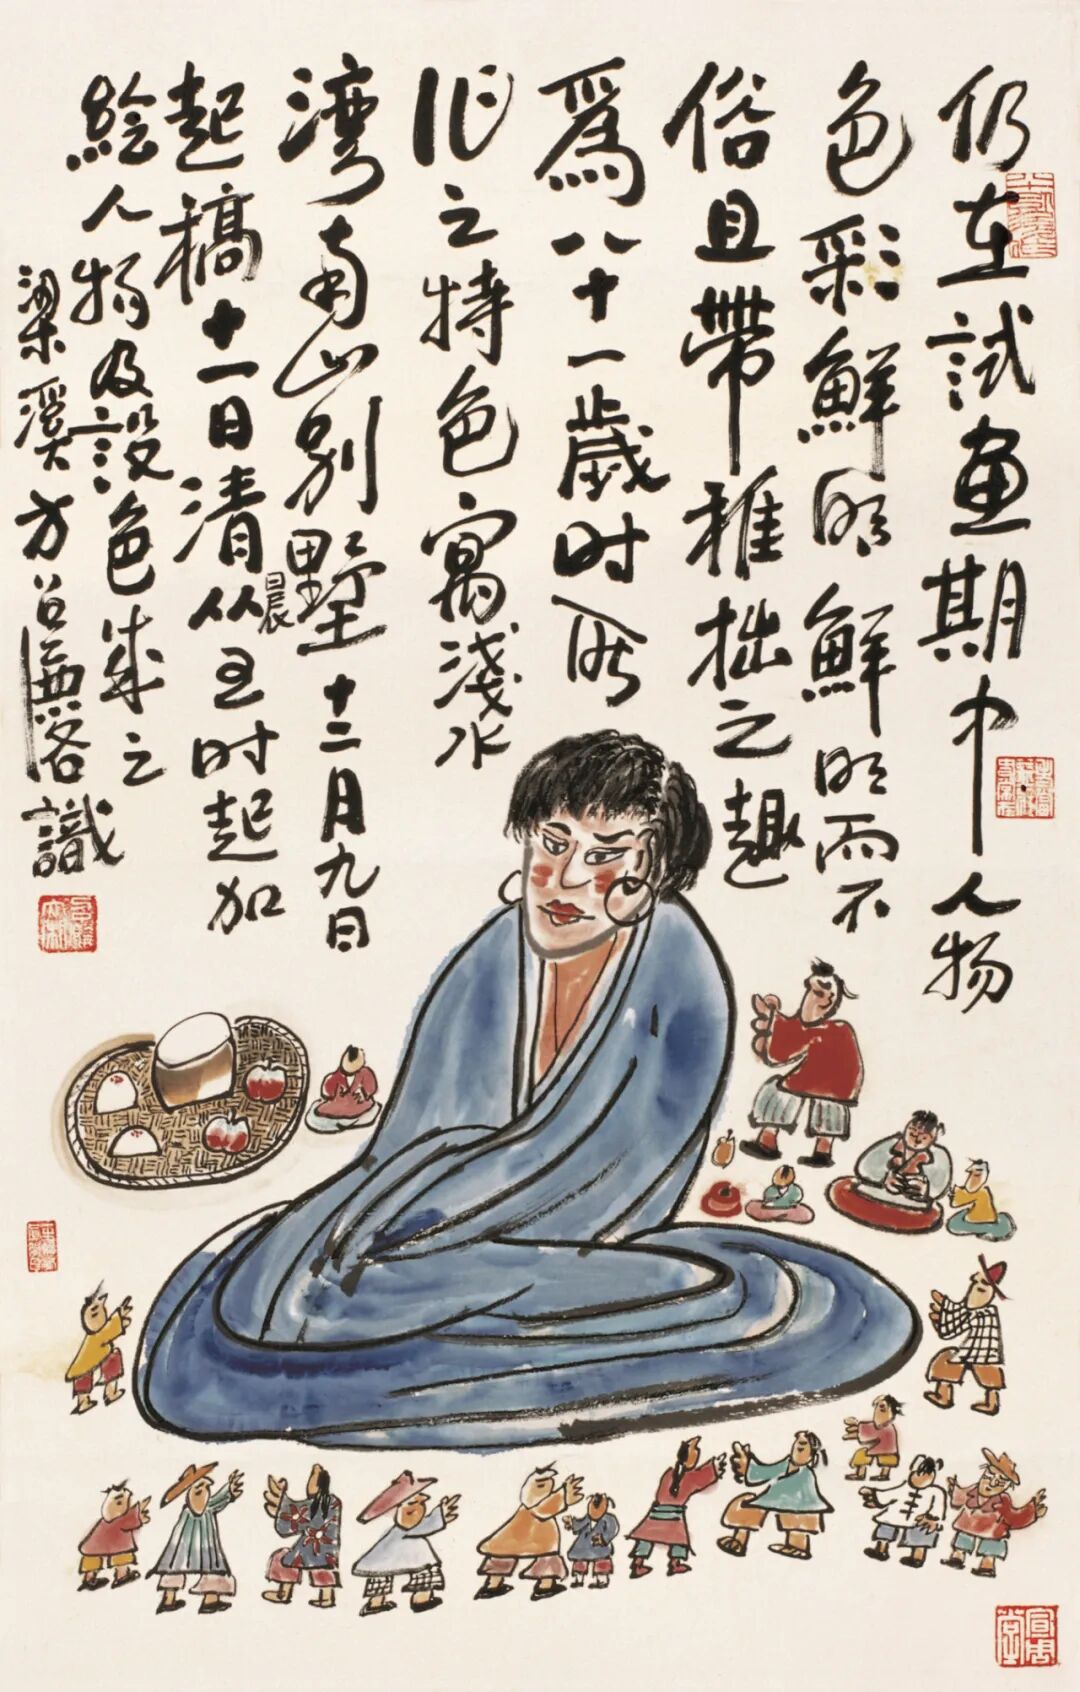 仍在試画期中人物
色彩鮮明鮮明而不
俗且帶稚拙之趣
爲八十一歲时所
作之特色寓淺水
湾南山别墅十二月九日
起稿十一日清晨从五时起加
繪人物及設色成之
梁溪方召麐客識